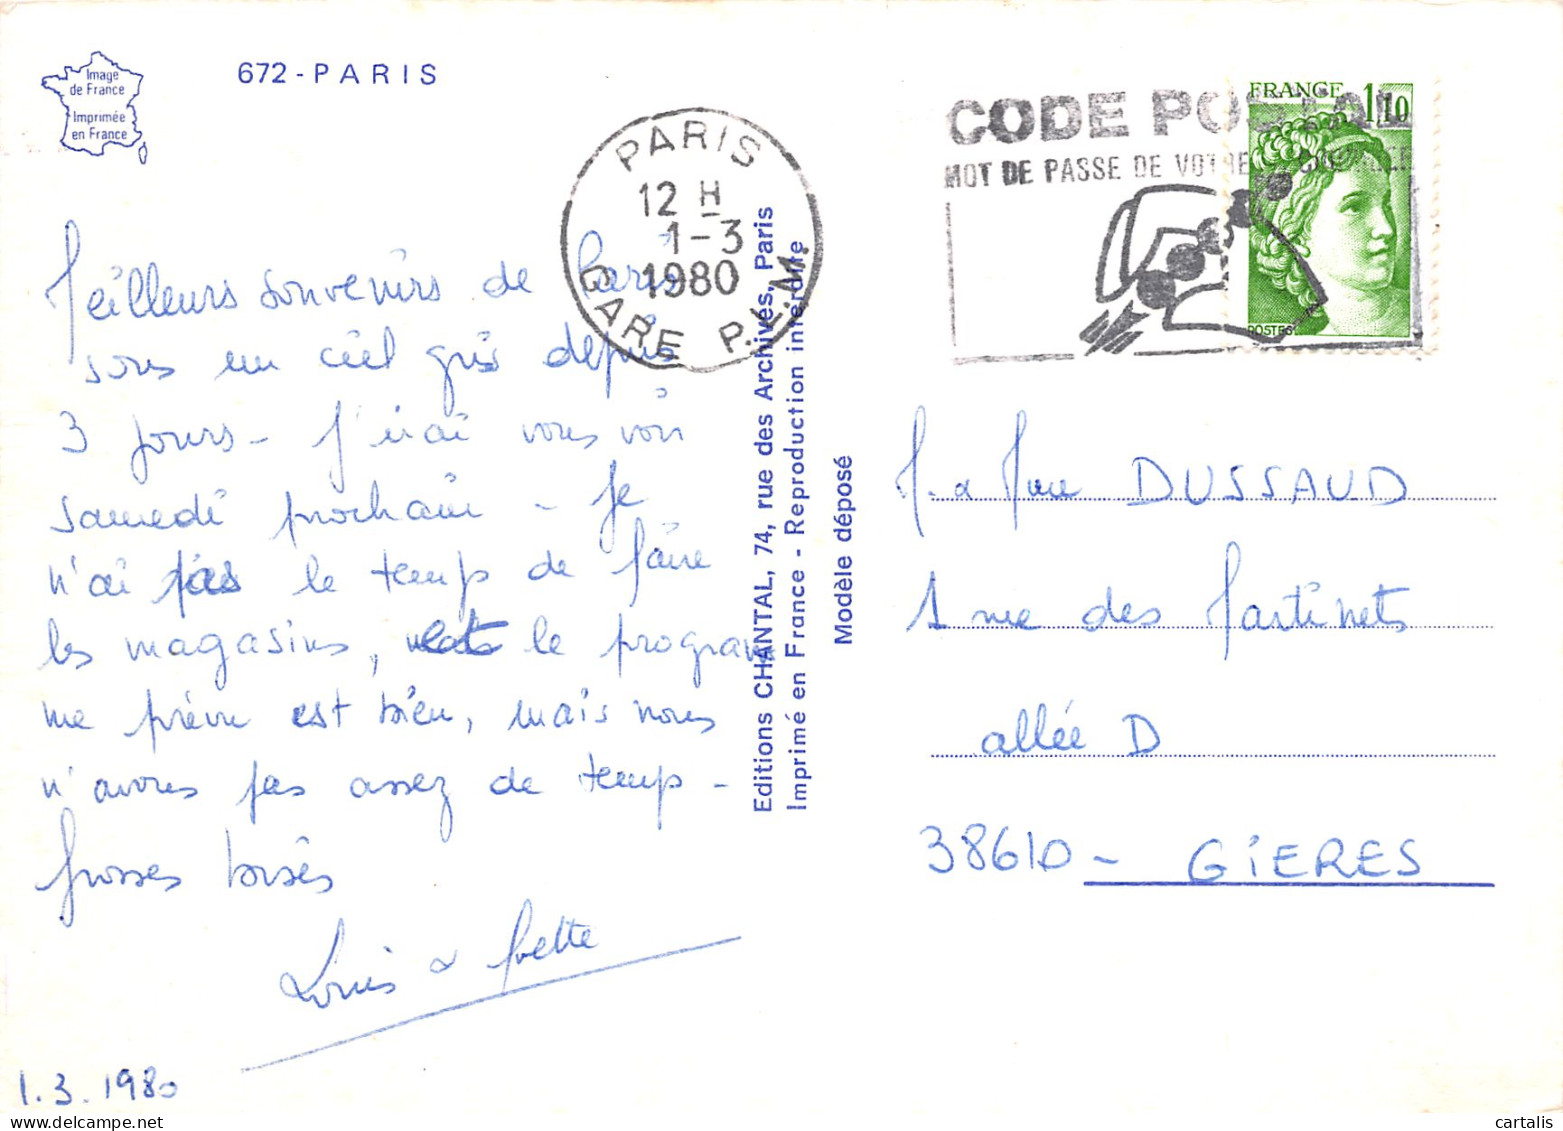 Image
de France
Imprimée
en France
672 - PARIS
PARIS
12 H
1-3
1980
GARE P.L.M.
CODE POSTAL
MOT DE PASSE DE VOTRE COURRIER
FRANCE 1,10
POSTES
Meilleurs souvenirs de Paris
sous un ciel gris depuis
3 jours - J'irai vous voir
samedi prochain - Je
n'ai pas le temps de faire
les magasins, le program
me prévu est bien, mais nous
n'avons pas assez de temps -
Grosses bises
Louis &
1.3.1980
Editions CHANTAL, 74, rue des Archives, Paris
Imprimé en France - Reproduction interdite
Modèle déposé
M. & Mme DUSSAUD
1 rue des Martinets
allée D
38610 - GIERES
cartalis